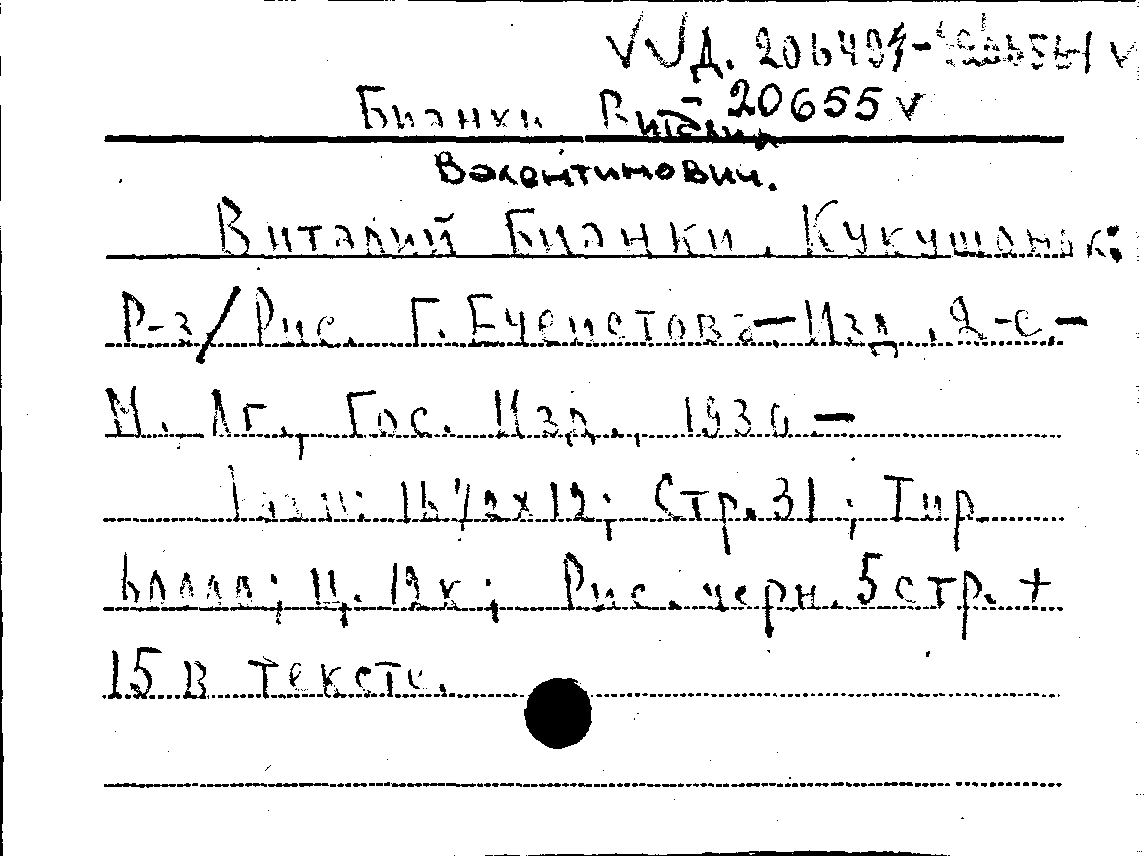 Д.
20655 v
Бианки Виталий
Валентинович.
Виталий Бианки. Кукушонок:
Р-з/Рис. Г. Ечеистова — Изд. 2-е. —
М. Лг., Гос. Изд., 1930 —
Разм: 16 1/2 x 12; Стр. 31; Тир.
Ц. 12 к; Рис. черн. 5 стр. +
15 в тексте.